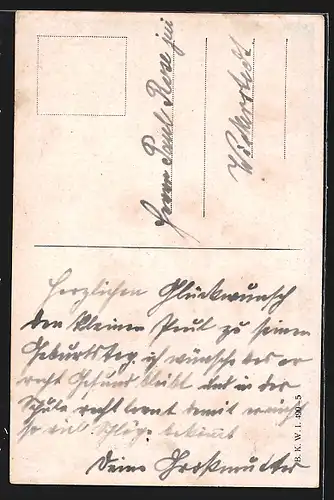 Herrn Paul Rose jui
Wickerstedt
Herzlichen Glückwunsch
den kleinen Paul zu seinen
Geburtstag ich wünsche das er
recht Gesund bleibt und in der
Schule recht lernt damit er nicht
so viel Schläge bekimt
Deine Großmutter
B. K. W. I. 490-5